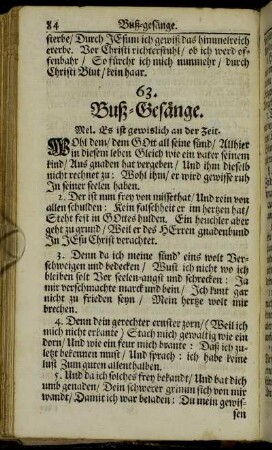 84 Buß-gesänge.
sterbe/ Durch JEsum ich gewiß das himmelreich
ererbe. Vor Christi richterstuhl/ ob ich werd of-
fenbahr/ So fürcht ich mich nunmehr/ durch
Christi Blut/ kein haar.
63.
Buß-Gesänge.
Mel. Es ist gewislich an der Zeit.
WOhl dem/ dem GOtt all seine sünd/ Allhier
in diesem leben Gleich wie ein vater seinem
kind/ Aus gnaden hat vergeben/ Und ihm dieselb
nicht rechnet zu: Wohl ihm/ er wird gewisse ruh
In seiner seelen haben.
2. Der ist nun frey von missethat/ Und rein von
allen schulden: Kein falschheit er im hertzen hat/
Steht fest in GOttes hulden. Ein heuchler aber
geht zu grund/ Weil er des HErren gnadenbund
In JEsu Christ verachtet.
3. Denn da ich meine sünd' eins wolt Ver-
schweigen und bedecken/ Wust ich nicht wo ich
bleiben solt Vor seelen-angst und schrecken: Ja
mir verschmachte marck und bein/ Ich kunt gar
nicht zu frieden seyn/ Mein hertze wolt mir
brechen.
4. Denn dein gerechter ernster zorn/ (Weil ich
mich nicht erkante) Stach mich gewaltig wie ein
dorn/ Und wie ein feur mich brante: Daß ich zu-
letzt bekennen must/ Und sprach: ich habe keine
lust Zum guten allenthalben.
5. Und da ich solches frey bekandt/ Und bat dich
umb genaden/ Dein schwerer grimm sich von mir
wandt/ Damit ich war beladen: Du mein gewis-
sen